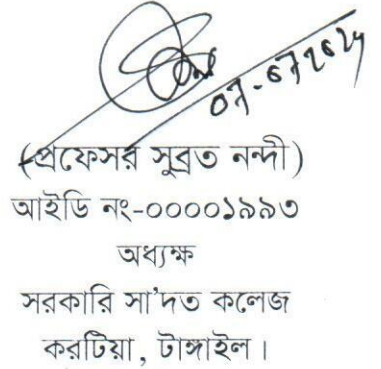 (প্রফেসর সুব্রত নন্দী)
আইডি নং-০০০০১৯৯৩
অধ্যক্ষ
সরকারি সা'দত কলেজ
করটিয়া, টাঙ্গাইল।